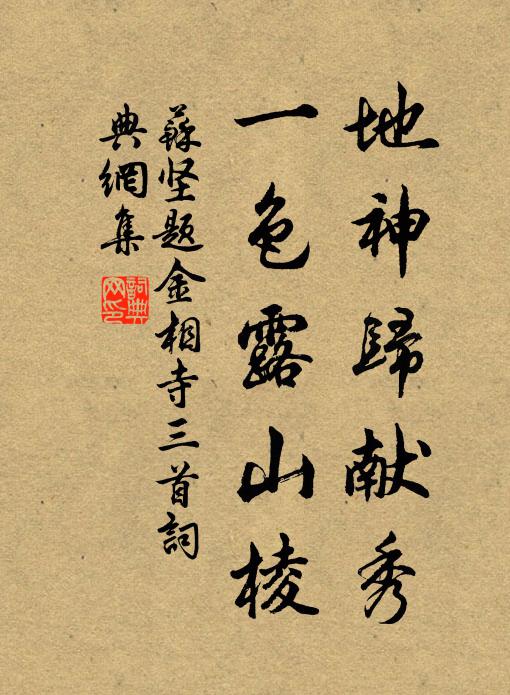 地神歸献秀
一色露山棱
蘇坚题金相寺三首詞
典網集
詞典
网印